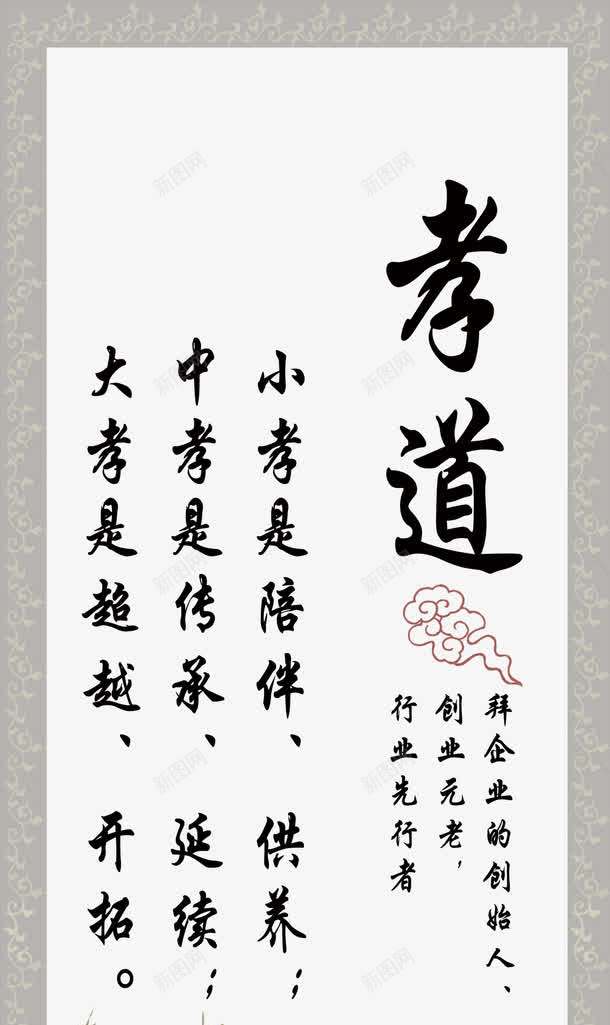 孝道
拜企业的创始人、
创业元老，
行业先行者
小孝是陪伴、供养；
中孝是传承、延续；
大孝是超越、开拓。
新图网